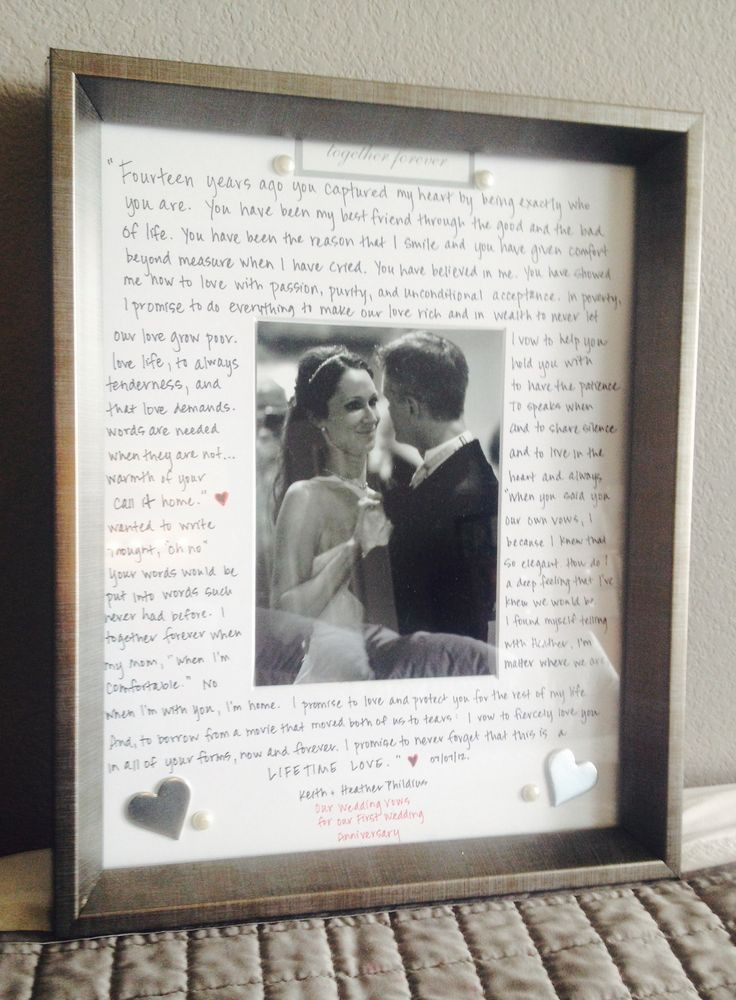 together forever
"Fourteen years ago you captured my heart by being exactly who
you are. You have been my best friend through the good and the bad
of life. You have been the reason that I smile and you have given comfort
beyond measure when I have cried. You have believed in me. You have showed
me how to love with passion, purity, and unconditional acceptance. In poverty,
I promise to do everything to make our love rich and in wealth to never let
our love grow poor. I vow to help you
love life, to always hold you with
tenderness, and to have the patience
that love demands. To speak when
words are needed and to share silence
when they are not... and to live in the
warmth of your heart and always
call it home." ♥ "When you said you
wanted to write our own vows, I
thought, "oh no" because I knew that
your words would be so elegant. How do I
put into words such a deep feeling that I've
never had before. I knew we would be
together forever when I found myself telling
my mom, "when I'm with Heather, I'm
comfortable." No matter where we are
when I'm with you, I'm home. I promise to love and protect you for the rest of my life.
And, to borrow from a movie that moved both of us to tears: I vow to fiercely love you
in all of your forms, now and forever. I promise to never forget that this is a
LIFETIME LOVE." ♥ 07/07/12.
Keith + Heather Phildius
Our Wedding Vows
for our First Wedding
Anniversary